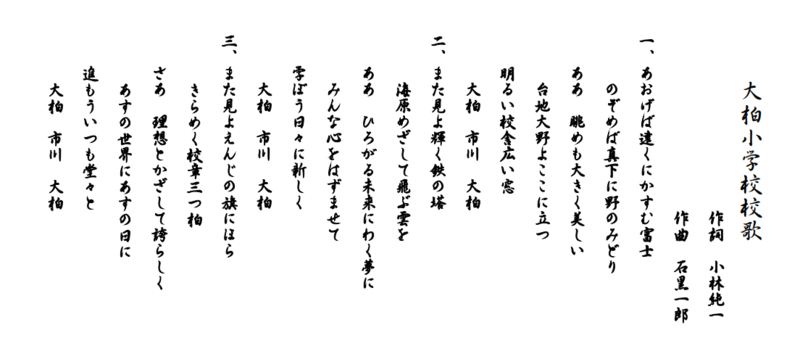 大柏小学校校歌
作詞　小林純一
作曲　石黒一郎
一、あおげば遠くにかすむ富士
のぞめば真下に野のみどり
ああ　眺めも大きく美しい
台地大野よここに立つ
明るい校舎広い窓
大柏　市川　大柏
二、また見よ輝く鉄の塔
海原めざして飛ぶ雲を
ああ　ひろがる未来にわく夢に
みんな心をはずませて
学ぼう日々に新しく
大柏　市川　大柏
三、また見よえんじの旗にほら
きらめく校章三つ柏
さあ　理想とかざして誇らしく
あすの世界にあすの日に
進もういつも堂々と
大柏　市川　大柏